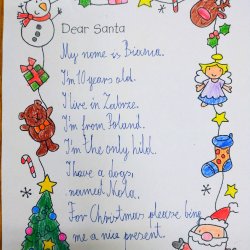 Dear Santa
My name is Bianka.
I'm 10 years old.
I live in Zabrze.
I'm from Poland.
I'm the only hild.
I have a dogs,
named Nela.
For Christmas please bing
me a nice present.